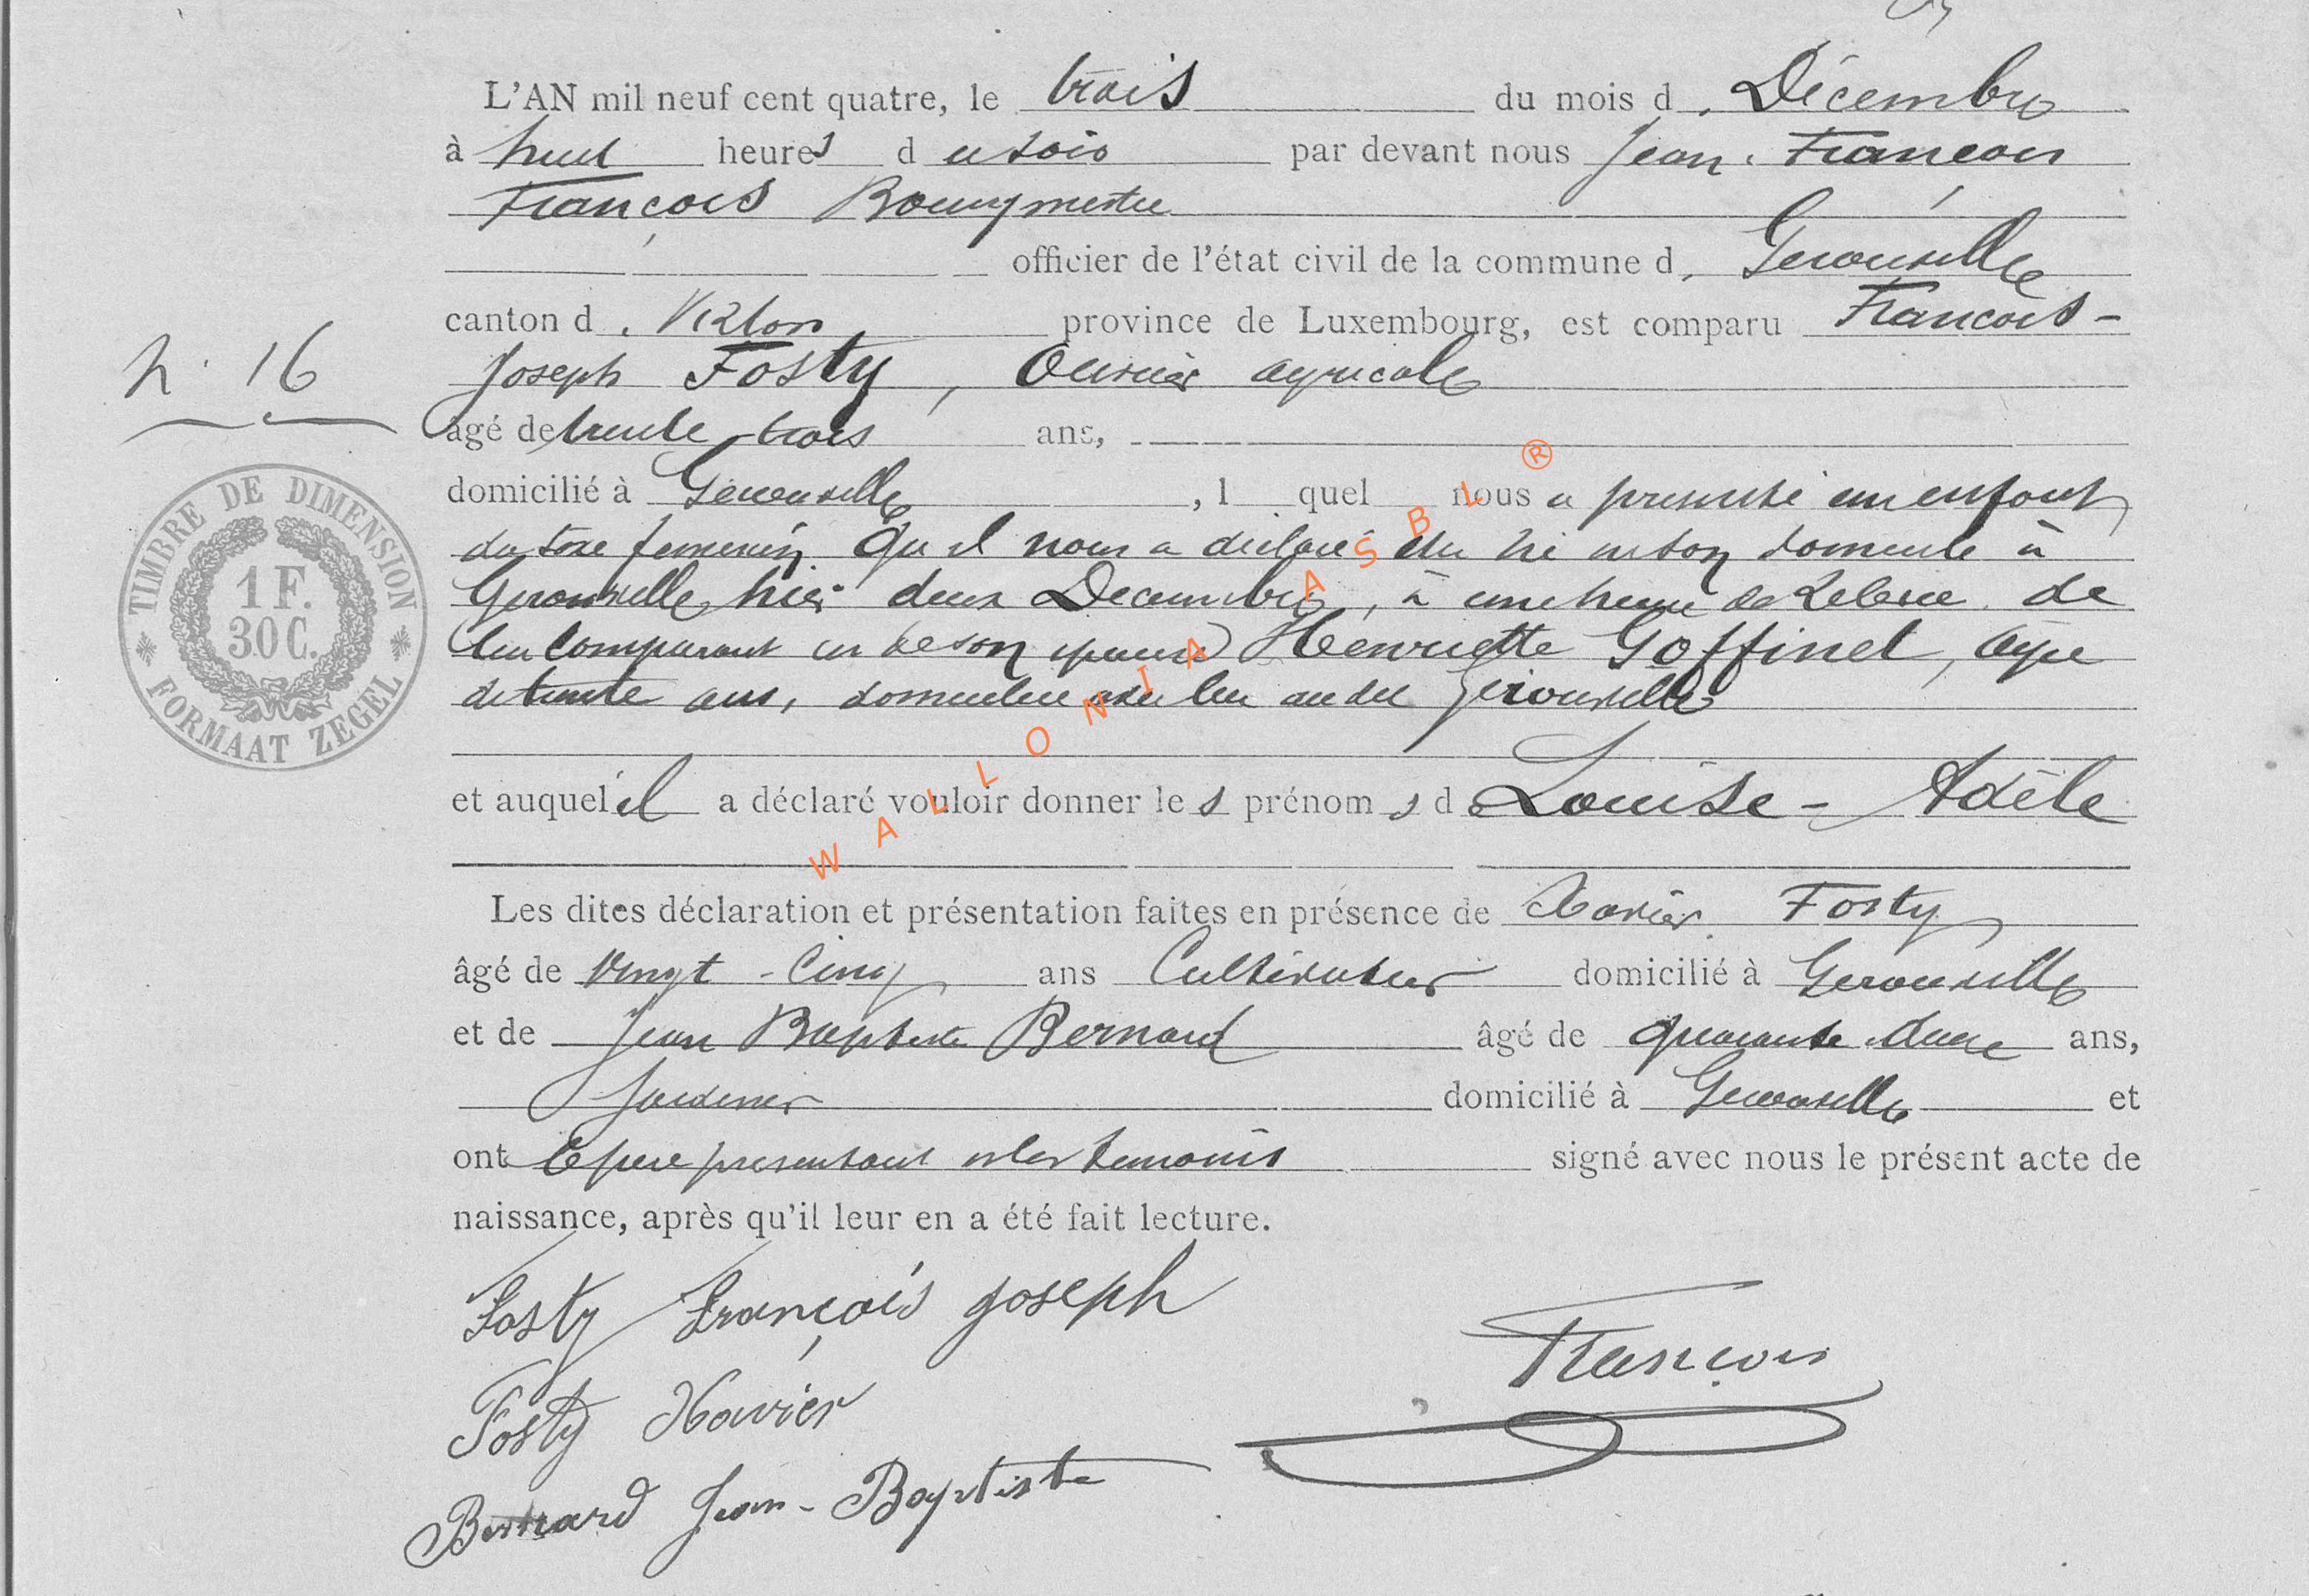 L'AN mil neuf cent quatre, le trois du mois d. Décembre
à huit heures du soir par devant nous Jean-François
François Bourgmestre
officier de l'état civil de la commune d. Gerouville
canton d. Virton province de Luxembourg, est comparu François-
Joseph Fosty, Ouvrier agricole
N. 16
âgé de trente trois ans,
domicilié à Gerouville, l quel nous a présenté un enfant
du sexe féminin qu'il nous a déclaré être né en son domicile à
Gerouville hier deux Decembre, à une heure de de
lui comparant et de son épouse Henriette Goffinet, âgée
de trente ans, domiciliée avec lui au dit Gerouville
TIMBRE DE DIMENSION
1 F.
30 C.
FORMAAT ZEGEL
et auquel il a déclaré vouloir donner les prénoms d. Louise-Adèle
Les dites déclaration et présentation faites en présence de Xavier Fosty
âgé de vingt-cinq ans Cultivateur domicilié à Gerouville
et de Jean Baptiste Bernard âgé de quarante-deux ans,
Jardinier domicilié à Gerouville et
ont le père présentant et les témoins signé avec nous le présent acte de
naissance, après qu'il leur en a été fait lecture.
Fosty François Joseph
François
Fosty Xavier
Bernard Jean-Baptiste
WALLONIA ASBL ®